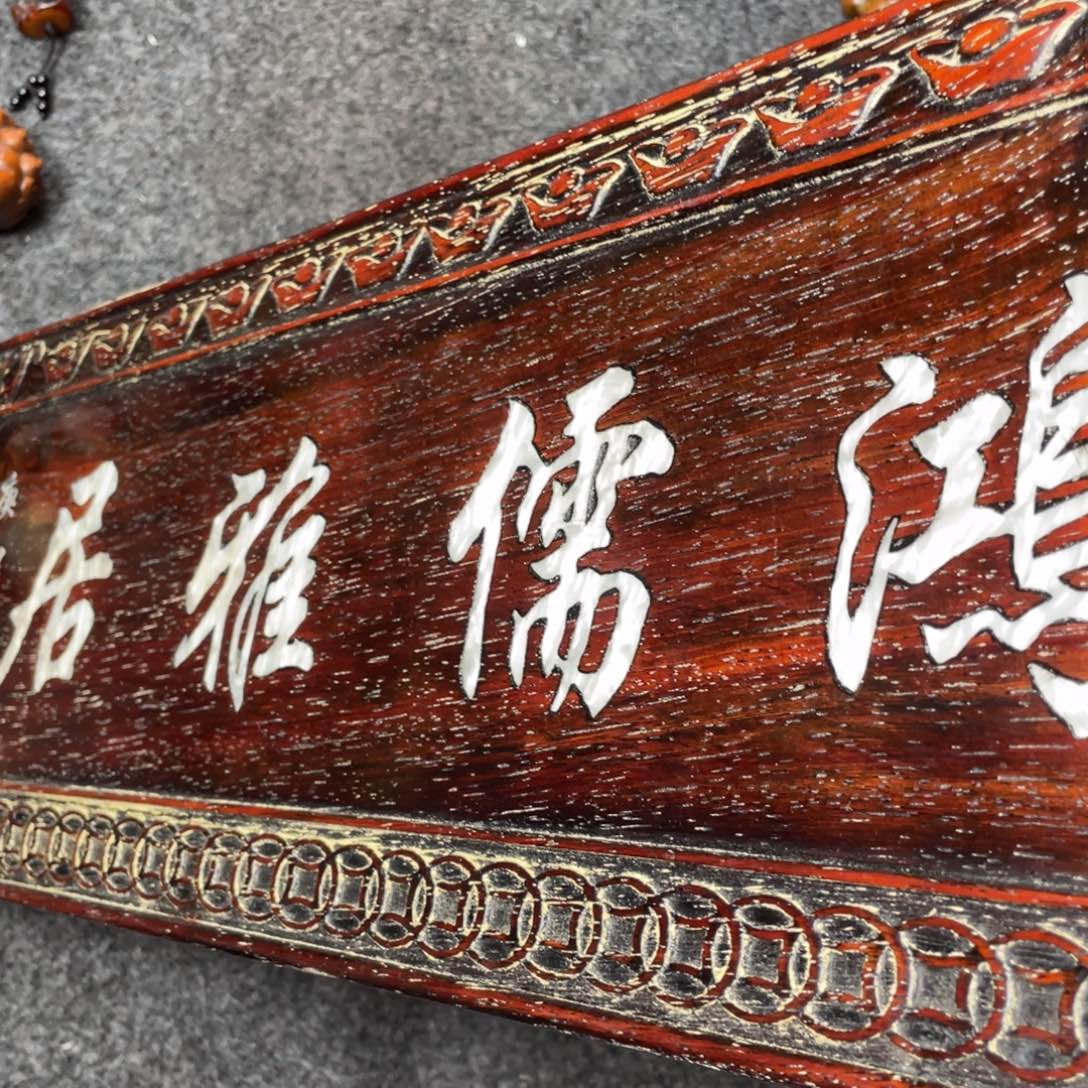 鴻儒雅居